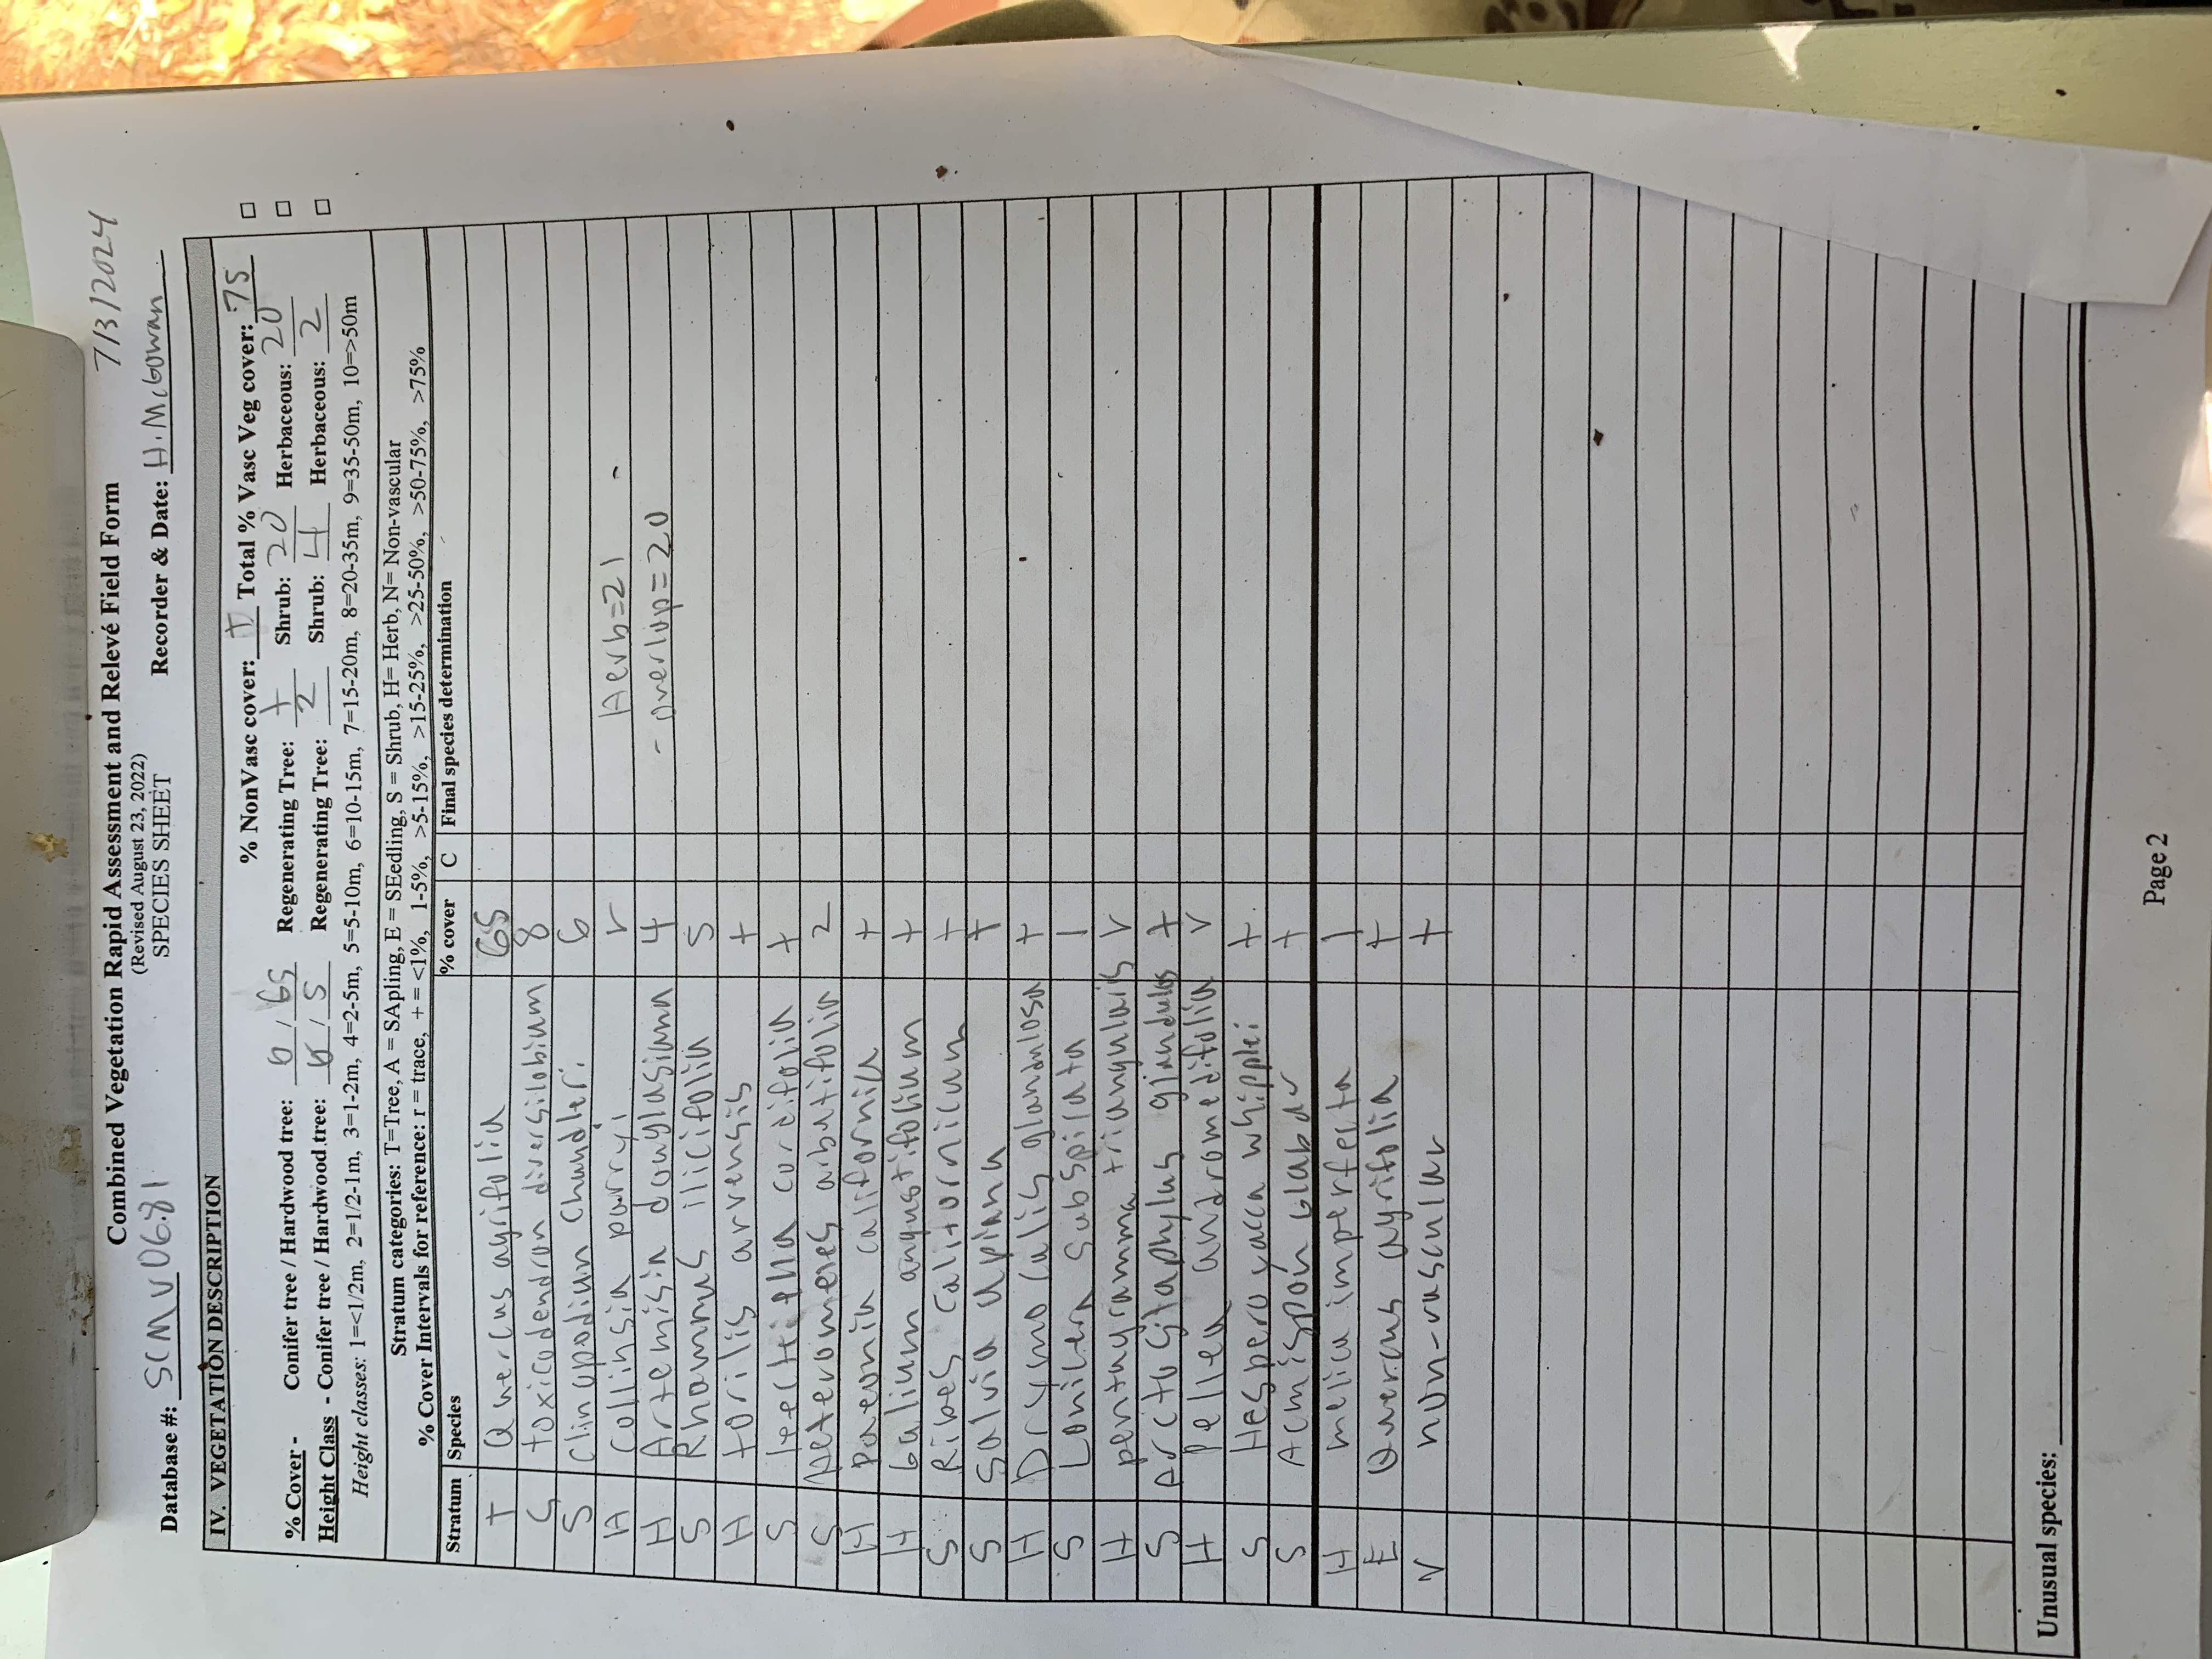 Combined Vegetation Rapid Assessment and Relevé Field Form
7/3/2024
(Revised August 23, 2022)
SPECIES SHEET
Database #: SCMV0681 Recorder & Date: H. McGowan
IV. VEGETATION DESCRIPTION
% NonVasc cover: + Total % Vasc Veg cover: 75
% Cover - Conifer tree / Hardwood tree: 0 / 65 Regenerating Tree: + Shrub: 20 Herbaceous: 20
Height Class - Conifer tree / Hardwood tree: / 5 Regenerating Tree: 2 Shrub: 4 Herbaceous: 2
Height classes: 1=<1/2m, 2=1/2-1m, 3=1-2m, 4=2-5m, 5=5-10m, 6=10-15m, 7=15-20m, 8=20-35m, 9=35-50m, 10=>50m
Stratum categories: T=Tree, A = SApling, E = SEedling, S = Shrub, H= Herb, N= Non-vascular
% Cover Intervals for reference: r = trace, + = <1%, 1-5%, >5-15%, >15-25%, >25-50%, >50-75%, >75%
Stratum Species % cover C Final species determination
T Quercus agrifolia 65
S toxicodendron diversilobium 8
S Clinopodium chandleri 6
H Collinsia parryi r Herb=21
H Artemisia douglasiana 4 - overlap=20
S Rhamnus ilicifolia 5
H torilis arvensis +
S keckiella cordifolia +
S Heteromeles arbutifolia 2
H Paeonia californica +
H Galium angustifolium +
S Ribes californicum +
S Salvia apiana +
H Drymocallis glandulosa +
S Lonicera subspicata 1
H pentagramma triangularis r
S Arctostaphylus glandulos +
H Pellea andromedifolia r
S Hesperoyucca whipplei +
S Acmispon Glaber +
H melica imperfecta 1
E Quercus agrifolia +
N non-vascular +
Unusual species:
Page 2